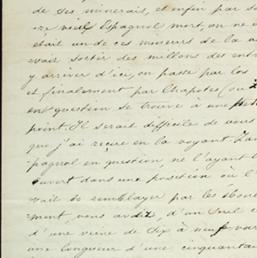 de ses minerais, et enfin par so
vieil Espagnol mort, on ne
était un de ces mineurs de la
voir sortir des millions des
y arriver d'ici, on passe par les
et finalement par Chapotes, ou
en question se trouve à une
point. Il serait difficile de vous
que j'ai reçue en la voyant
pagnol en question, ne l'ayant
ouvert dans une position où l
vait se semblayer par les
ment, vous dit, d'un seul c
d'une veine de six à neuf var
une longueur d'une cinquantai